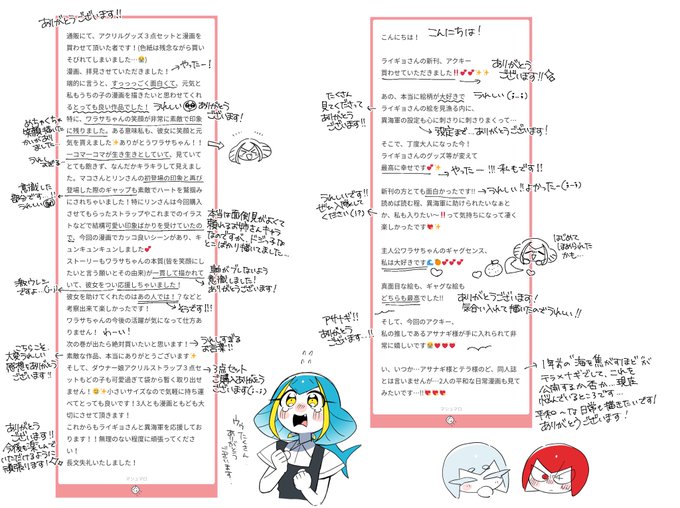 ありがとうございます!!
通販にて、アクリルグッズ３点セットと漫画を
買わせて頂いた者です！(色紙は残念ながら買い
そびれてしまいました…😢)
やったー!
漫画、拝見させていただきました！
端的に言うと、すっっっごく面白くて、元気と
私もうちの子の漫画を描きたいと思わせてくれ
るとっても良い作品でした！
うれしい
ありがとうございます!
特に、ワラサちゃんの笑顔が非常に素敵で印象
に残りました。ある意味私も、彼女に笑顔と元
気を貰えました✨ありがとうワラサちゃん！！
ーコマーコマが生き生きとしていて、見ていて
とても飽きず、なんだかキラキラして見えまし
た。マコさんとリンさんの初登場の印象と再び
登場した際のギャップも素敵でハートを鷲掴み
にされちゃいました！特にリンさんは今回購入
させてもらったストラップやこれまでのイラス
トなどで結構可愛い印象ばかりを受けていたの
で、今回の漫画でカッコ良いシーンがあり、キ
ュンキュンキュンしました💕
本当は面倒見がよくて
頼れるお姉さんキャラ
なのですが、ドジっ子な
とこばかり描いてました…
ストーリーもワラサちゃんの本質(皆を笑顔に
したいと言う願いとその由来)が一貫して描かれて
いて、彼女をつい応援しちゃいました！
軸がブレないよう
意識しました!
ありがとうございます!
激ウレシイ
ですよ…
彼女を助けてくれたのはあの人では！？などと
考察出来て楽しかったです！
そうです!!!
ワラサちゃんの今後の活躍が気になって仕方あ
りません！
わーい!
次の巻が出たら絶対買いたいと思います！
うれしすぎる
お言葉!!
素敵な作品、本当にありがとうございます✨
こちらこそ
大変うれしい
感想をありがとう
ございます!!
そして、ダウナー娘アクリルストラップ３点セ
ットもどの子も可愛過ぎて袋から暫く取り出せ
ません！😊✨小さいサイズなので気軽に持ち運
べてとっても良いです！3人とも漫画ともども大
切にさせて頂きます！
3点セット
ご購入ありがとう
ございます!
これからもライギョさんと異海軍を応援してお
ります！！無理のない程度に頑張ってください！
ありがとう
ございます!!
今後も楽しんで
いただけるように
頑張ります!
長文失礼いたしました！
マシュマロ
こんにちは！
こんにちは!
ライギョさんの新刊、アクキー
買わせていただきました‼️💕💕✨✨
ありがとう
ございます!!
あの、本当に絵柄が大好きで
うれしい
ライギョさんの絵を見漁る内に、
異海軍の設定も心に刺さりに刺さりまくって…
たくさん
見てくださって
ありがとう
ございます!!
設定まで…ありがとうございます!
そこで、丁度大人になった今！
ライギョさんのグッズ等が変えて
最高に幸せです💕✨
やったー!!! 私もです!!
新刊の方とても面白かったです‼️
うれしい!! よかったー
読めば読む程、異海軍に助けられたいなぁと
か、私も入りたい〜‼️って気持ちになって凄く
楽しかったです❤️✨
うれしいです!!
ぜひ入隊して
ください(!?)
主人公ワラサちゃんのギャグセンス、
私は大好きです🌊🍊💕💕💕
はじめて
ほめられた
かも…
真面目な絵も、ギャグな絵も
どちらも最高でした‼️
ありがとうございます!
気合い入れて描いたのでうれしい!!
そして、今回のアクキー、
私の推しであるアサナギ様が手に入れられて非
常に嬉しいです😭❤️❤️❤️
アサナギ!!
ありがとう
ございます…!!
い、いつか…アサナギ様とテラ様のど、同人誌
とは言いませんが…2人の平和な日常漫画も見て
みたいです…‼️❤️❤️❤️
1年前の“海を焦がすほど”が
公開するか否か…現在
悩んでいるところです…
平和〜な日常も描きたいです!
ありがとうございます!
マシュマロ